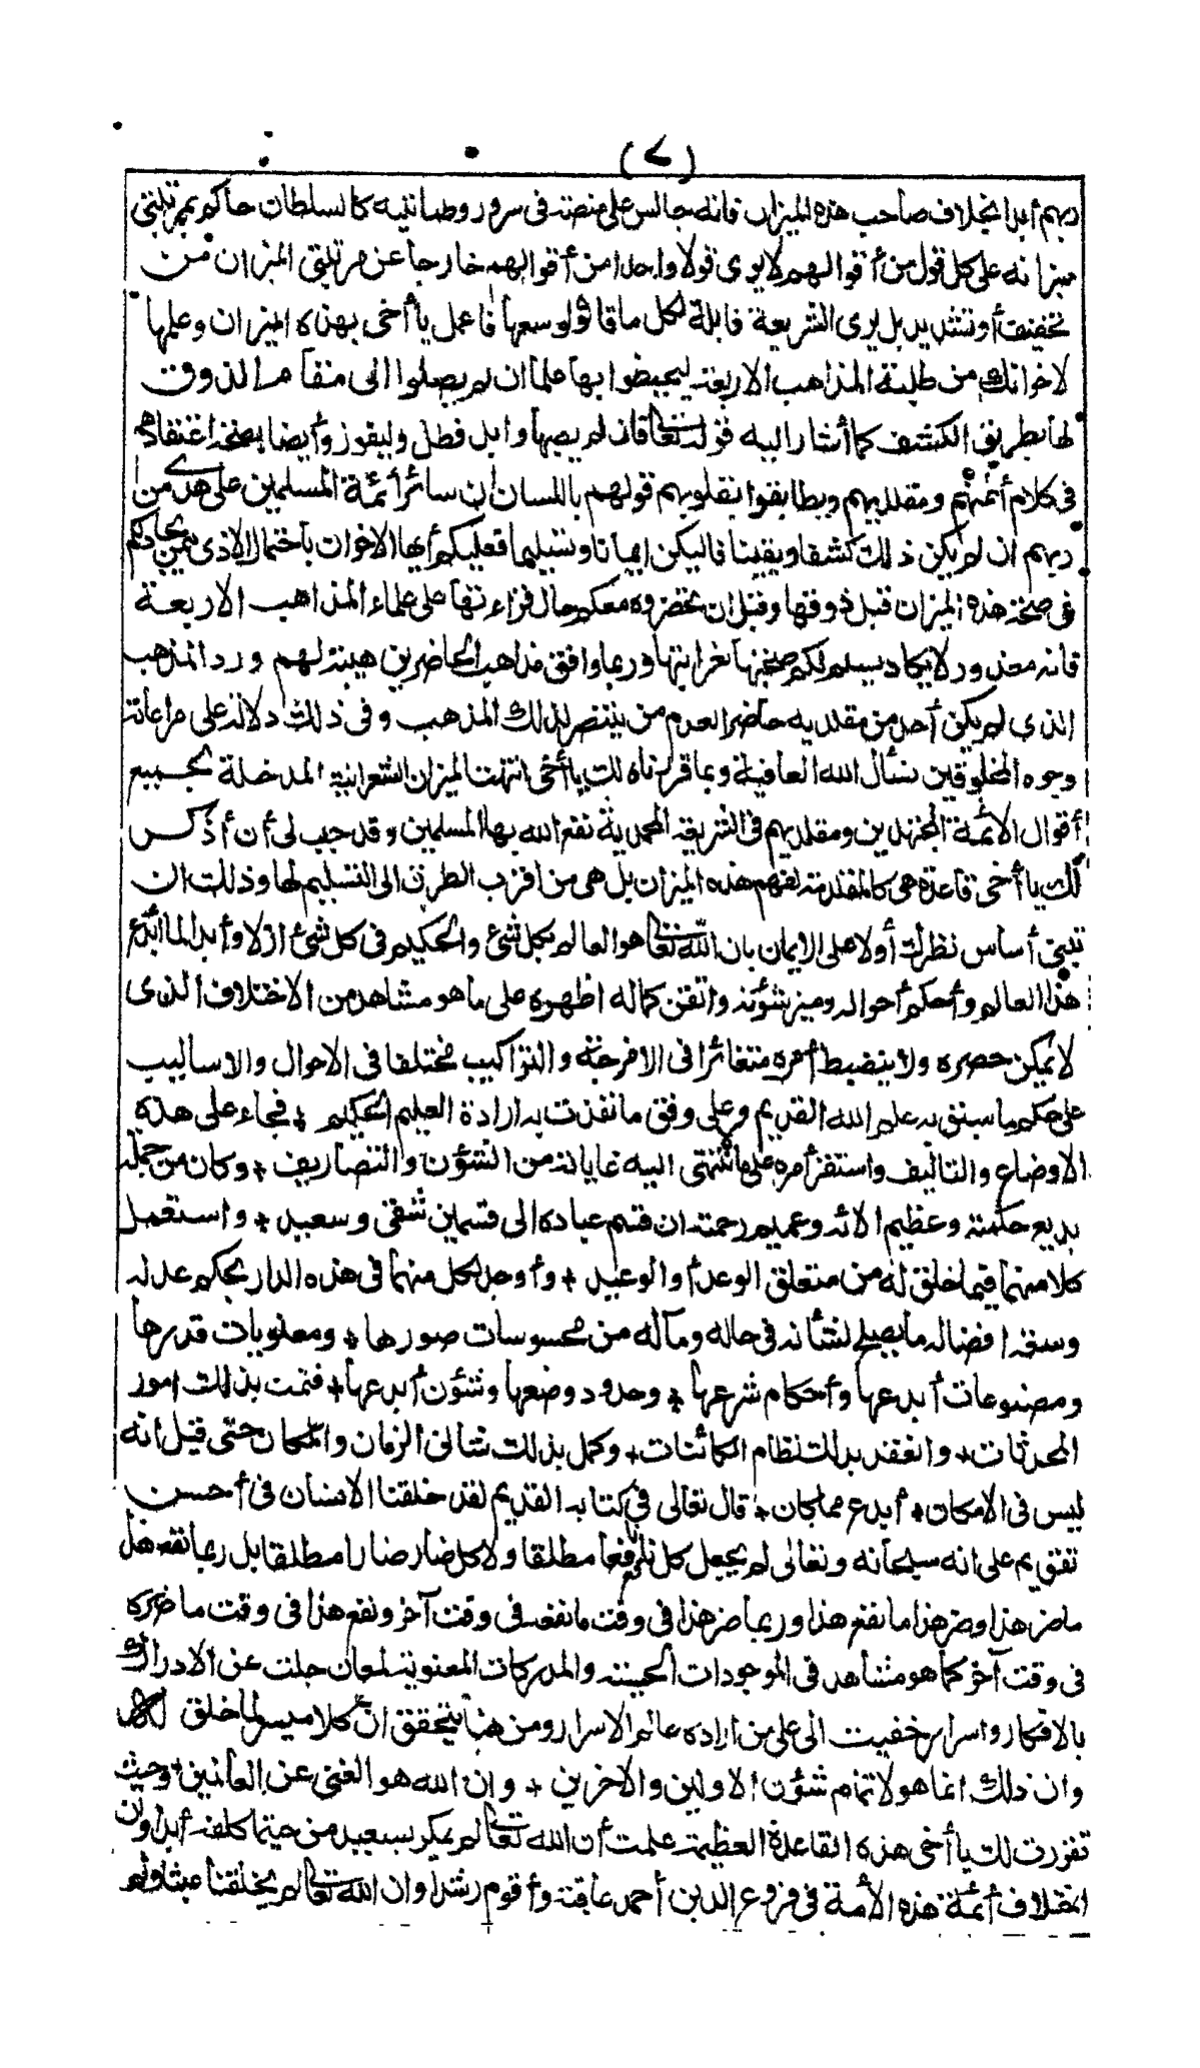 (٧)
ربهم أبدا بخلاف صاحب هذه الميزان فانه جالس على منصة في سرور وطمأنينة كالسلطان حاكم بمرتبتي
ميزانه على كل قول من أقوالهم لا يرى قولا واحدا من أقوالهم خارجا عن مرتبتي الميزان من
تخفيف أو تشديد بل يرى الشريعة قابلة لكل ما قالوه لوسعها فاعمل يا أخي بهذه الميزان وعلمها
لاخوانك من طلبة المذاهب الاربعة ليحيطوا بها علما ان لم يصلوا الى مقام الذوق
لها بطريق الكشف كما أشار اليه قوله تعالى فان لم يصبها وابل فطل وليفوزوا أيضا بصحة اعتقادهم
في كلام أئمتهم ومقلديهم ويطابقوا بقلوبهم قولهم باللسان ان سائر أئمة المسلمين على هدى من
ربهم ان لم يكن ذلك كشفا ويقينا فاليكن ايمانا وتسليما فعليكم أيها الاخوان باحتمال الاذى ممن يجادلكم
في صحة هذه الميزان قبل ذوقها وقبل ان تحضروه معكم حال قراءتها على علماء المذاهب الاربعة
فانه معذور لا يكاد يسلم لكم صحتها لغرابتها وربما وافق مذاهب الحاضرين هيبة لهم ورد المذهب
الذي لم يكن أحد من مقلديه حاضرا لعدم من ينتصر لذلك المذهب وفي ذلك دلالة على مراعاته
وجوه المخلوقين نسأل الله العافية وبما قررناه لك يا أخي انتهت الميزان الشعرانية المدخلة لجميع
أقوال الائمة المجتهدين ومقلديهم في الشريعة المحمدية نفع الله بها المسلمين وقد حبب لي أن أذكر
لك يا أخي قاعدة هي كالمقدمة لفهم هذه الميزان بل هي من اقرب الطرق الى التسليم لها وذلك ان
تبني أساس نظرك أولا على الايمان بان الله تعالى هو العالم بكل شئ والحكيم في كل شئ ازلا وأبدا لما أبدع
هذا العالم وأحكم أحواله وميز شؤنه واتقن كماله اظهره على ما هو مشاهد من الاختلاف الذي
لا يمكن حصره ولا ينضبط أمره متغائرا في الامزجة والتراكيب مختلفا في الاحوال والاساليب
على حكم ما سبق به علم الله القديم وعلى وفق ما نفذت به ارادة العليم الحكيم + فجاء على هذه
الاوضاع والتآليف واستقر أمره على ما تنتهي اليه غاياته من الشؤن والتصاريف + وكان من جملة
بديع حكمته وعظيم الائه وعميم رحمته ان قسم عباده الى قسمين شقي وسعيد + واستعمل
كلا منهما فيما خلق له من متعلق الوعد أو الوعيد + وأوجد لكل منهما في هذه الدار بحكم عدله
وسعة افضاله ما يصلح لشأنه في حاله ومآله من محسوسات صورها + ومعنويات قدرها
ومصنوعات أبدعها وأحكام شرعها + وحدود وضعها وشؤن أبدعها + فتمت بذلك امور
المحدثات + وانعقد بذلك نظام الكائنات + وكمل بذلك شأن الزمان والمكان حتى قيل انه
ليس في الامكان + أبدع مما كان + قال تعالى في كتابه القديم لقد خلقنا الانسان في أحسن
تقويم على انه سبحانه وتعالى لم يجعل كل نافع نافعا مطلقا ولا كل ضار ضارا مطلقا بل ربما نفع هذا
ما ضر هذا وضر هذا ما نفع هذا وربما ضر هذا في وقت ما نفعه في وقت آخر ونفع هذا في وقت ما ضره
في وقت آخر كما هو مشاهد في الموجودات الحسية والمدركات المعنوية لمعان جلت عن الادراك
بالافكار واسرار خفيت الى على من اراده عالم الاسرار ومن هنا يتحقق ان كلا ميسر لما خلق له
وان ذلك انما هو لاتمام شؤن الاولين والاخرين + وان الله هو الغني عن العالمين + وحيث
تقررت لك يا أخي هذه القاعدة العظيمة علمت أن الله تعالى لم يمكر بسعيد من حيثما كلفه أبدا وان
اختلاف أئمة هذه الأمة في فروع الدين أحمد عاقبة وأقوم رشدا وان الله تعالى لم يخلقنا عبثا ولم